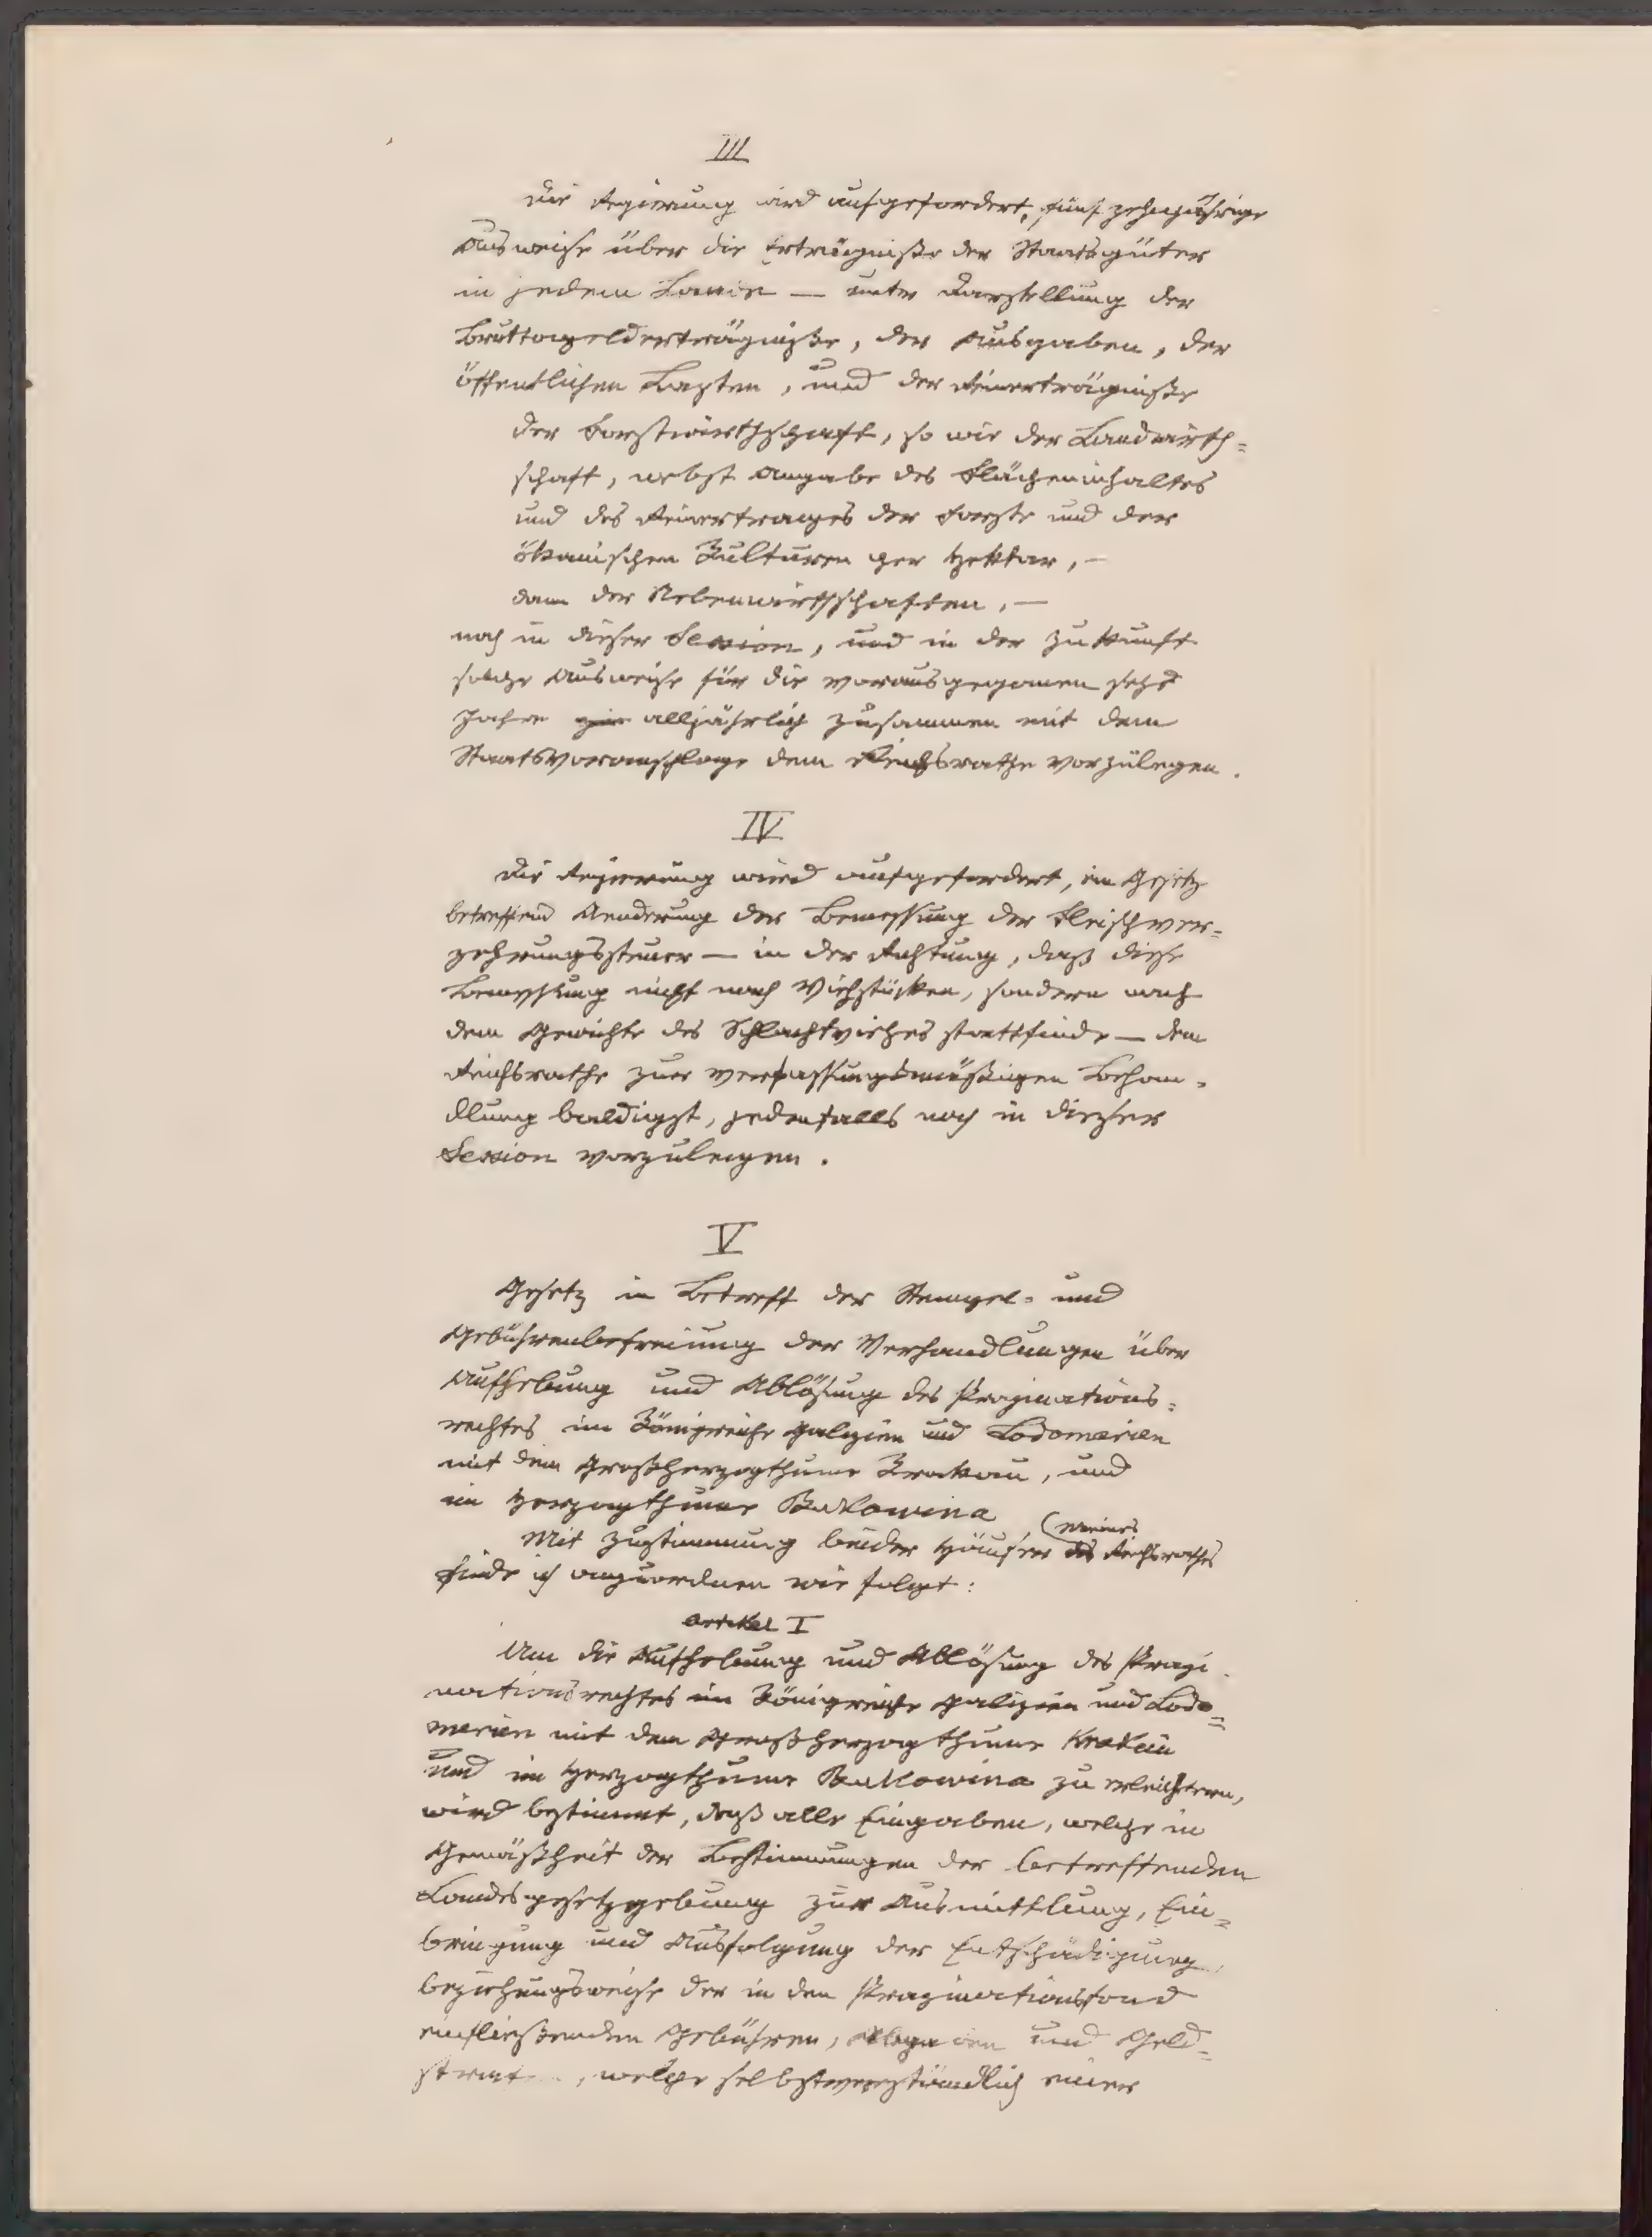 III
Die Regierung wird aufgefordert, fünf zehnjährige
Ausweise über die Erträgnisse der Staatsgüter
in jedem Lande — unter Darstellung der
Bruttogelderträgniße, der Ausgaben, der
öffentlichen Lasten, und der Reinerträgniße
der Forstwirthschaft, so wie der Landwirth=
schaft, nebst Angabe des Flächeninhaltes
und des Reinertrages der Forste und der
ökonomischen Kulturen per Hektar, —
dann der Nebenwirthschaften, —
noch in dieser Session, und in der Zukunft
solche Ausweise für die vorausgegangenen sechs
Jahre alljährlich zusammen mit dem
Staatsvoranschlage dem Reichsrathe vorzulegen.
IV
Die Regierung wird aufgefordert, ein Gesetz
betreffend Aenderung der Bemessung der Fleischver=
zehrungssteuer — in der Richtung, daß diese
Bemessung nicht nach Viehstücken, sondern nach
dem Gewichte des Schlachtviehes stattfinde — dem
Reichsrathe zur verfassungsmäßigen Behan-
dlung baldigst, jedenfalls noch in dieser
Session vorzulegen.
V
Gesetz in Betreff der Stempel- und
Gebührenbefreiung der Verhandlungen über
Aufhebung und Ablösung des Propinations=
rechtes im Königreiche Galizien und Lodomerien
mit dem Großherzogthume Krakau, und
im Herzogthume Bukowina.
Mit Zustimmung beider Häuser des Reichsrathes
finde ich anzuordnen wie folgt:
Artikel I
Um die Aufhebung und Ablösung des Propi-
nationsrechtes im Königreiche Galizien und Lodo=
merien mit dem Großherzogthume Krakau
und im Herzogthume Bukowina zu erleichtern,
wird bestimmt, daß alle Eingaben, welche in
Gemäßheit der Bestimmungen der betreffenden
Landesgesetzgebung zur Ausmittlung, Ein=
bringung und Ausfolgung der Entschädigung,
beziehungsweise der in den Propinationsfond
einfließenden Gebühren, und Geld=
, welche selbstverständlich einer